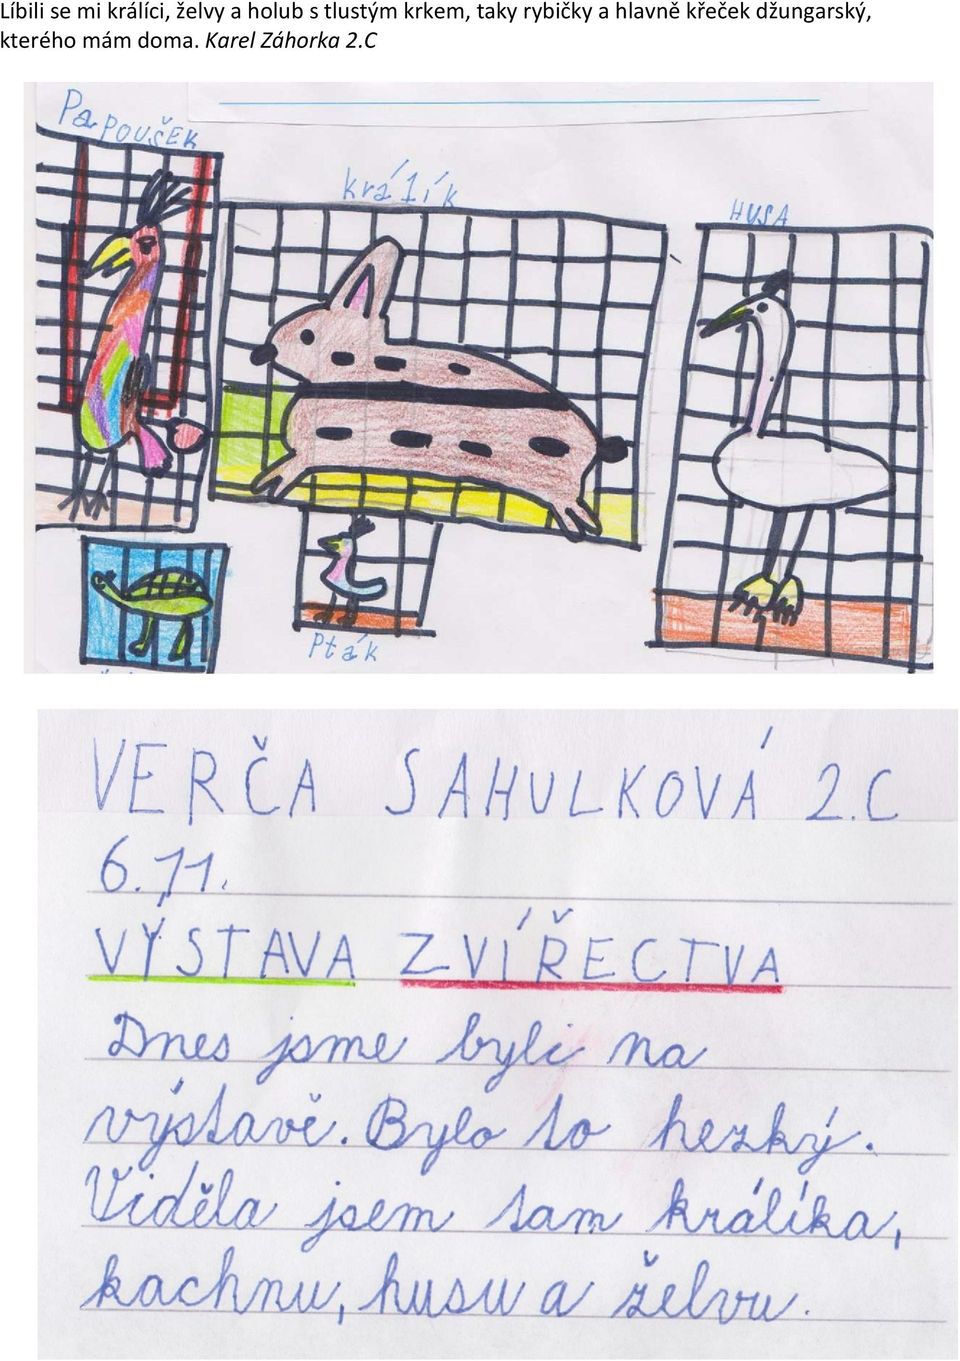 Líbili se mi králíci, želvy a holub s tlustým krkem, taky rybičky a hlavně křeček džungarský,
kterého mám doma. Karel Záhorka 2.C
PaPOUŠEK
králík
HUSA
Pták
VERČA SAHULKOVÁ 2.C
6.11.
VÝSTAVA ZVÍŘECTVA
Dnes jsme byli na
výstavě. Bylo to hezký.
Viděla jsem tam králíka,
kachnu, husu a želvu.